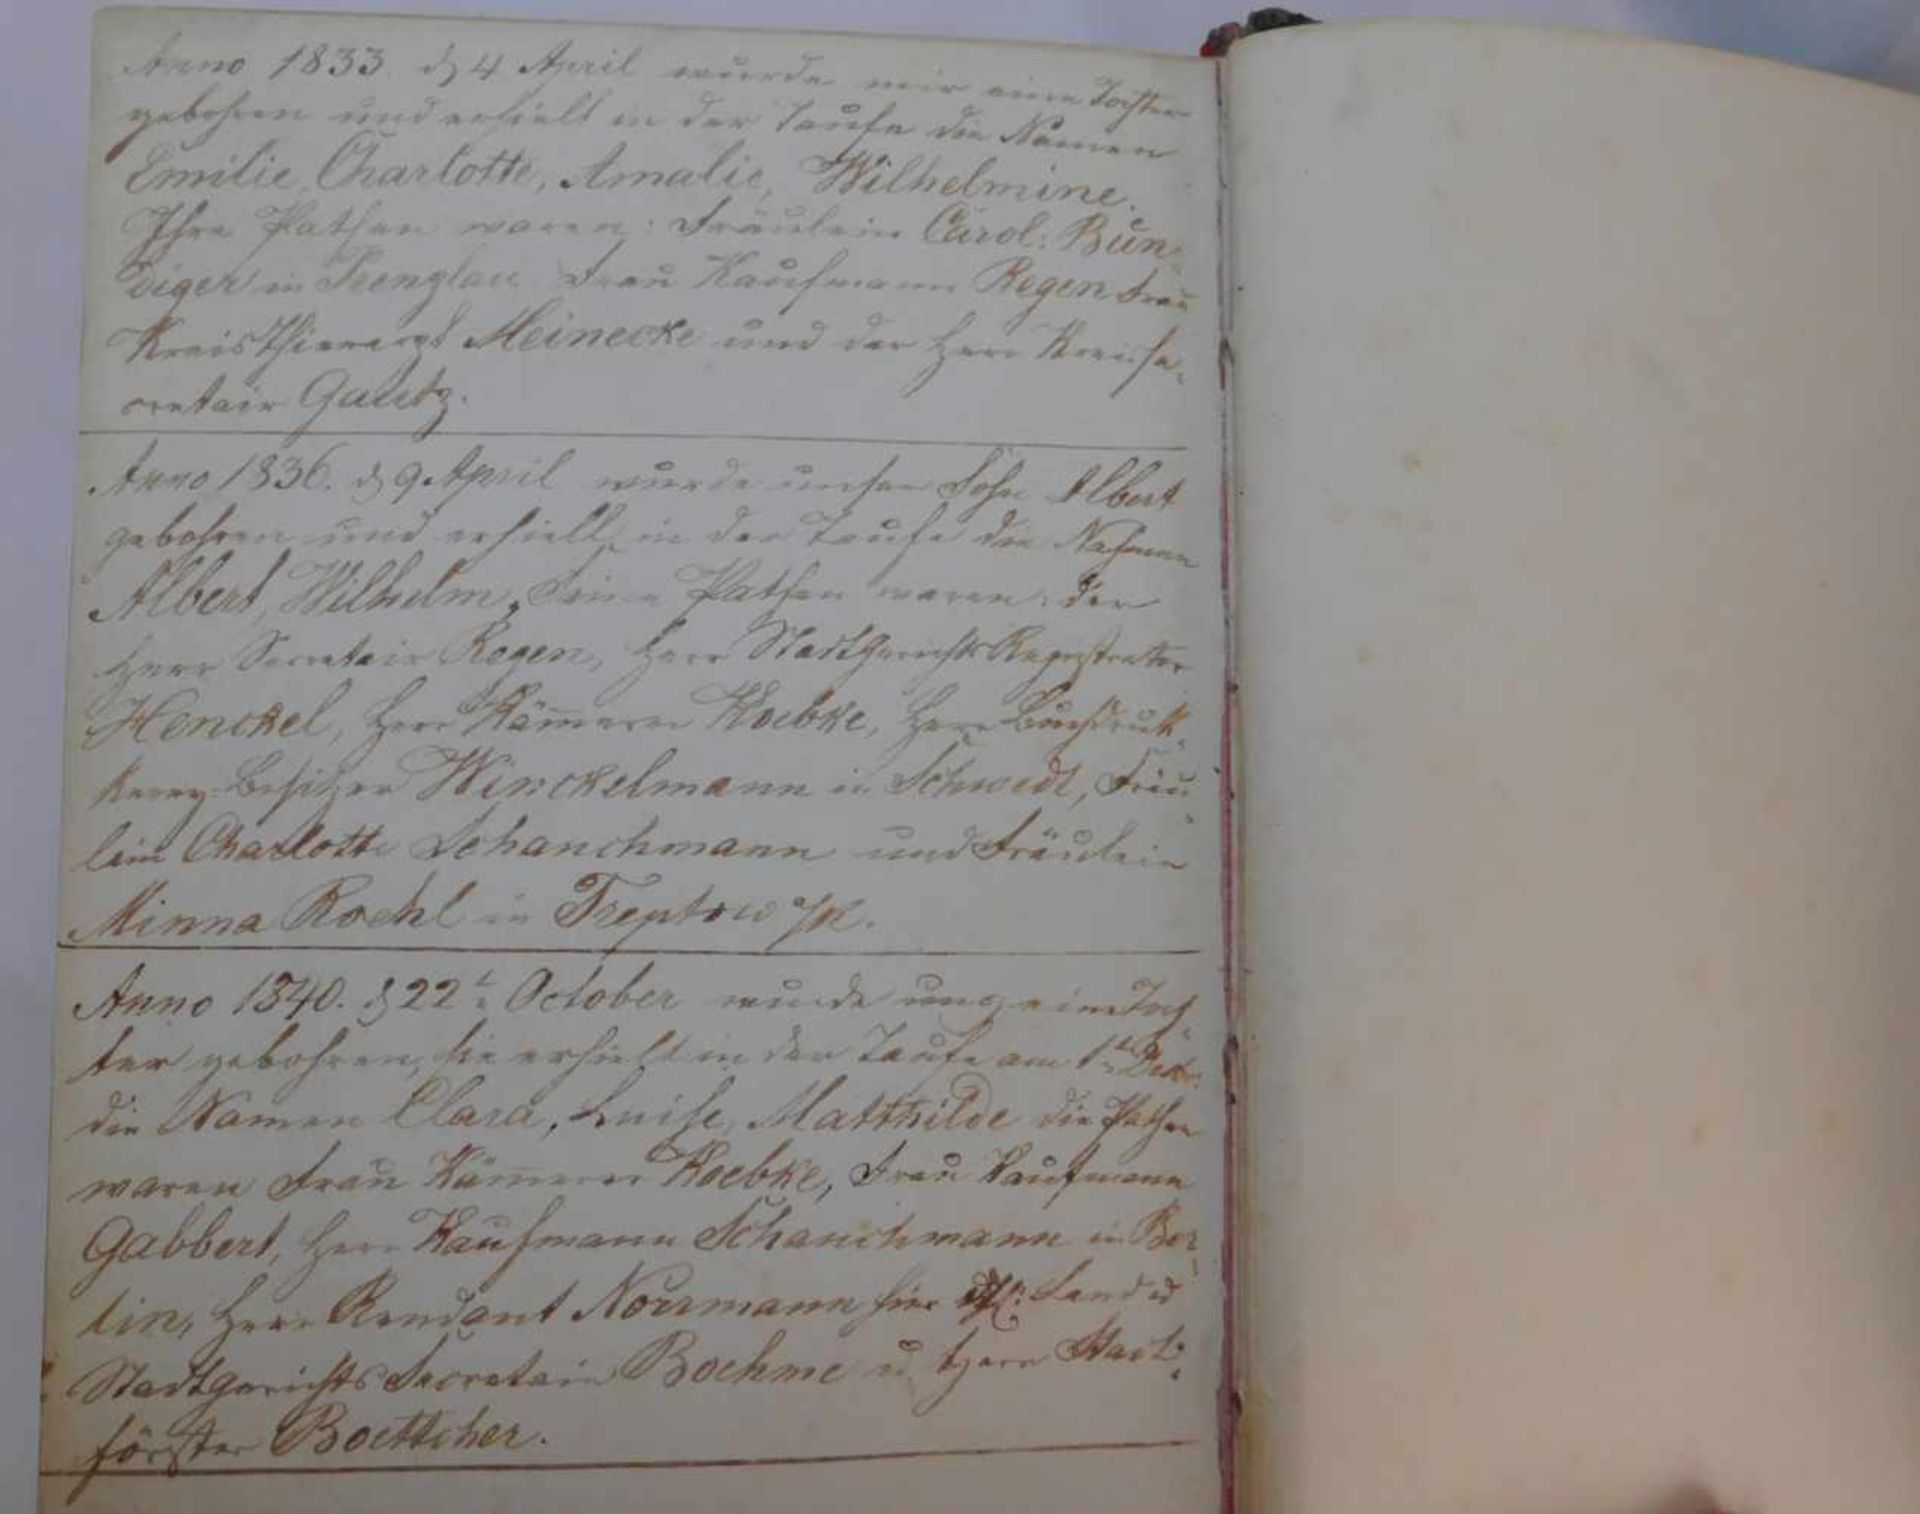 Anno 1833. d 4 April wurde mir eine Tochter
gebohren und erhielt in der Taufe die Namen
Emilie, Charlotte, Amalie, Wilhelmine.
Ihre Pathen waren: Fräulein Carol: Bün-
diger in Prenzlau Frau Kaufmann Regen Frau
Kreisthierarzt Meinecke und der Herr Kreisse-
cretair Gantz.
Anno 1836. d 9 April wurde unser Sohn Albert
gebohren und erhielt in der Taufe die Nahmen
Albert, Wilhelm, Seine Pathen waren: der
Herr Secretair Regen, Herr Stadtgerichts Registrator
Henckel, Herr Käm̄erer Koebke, Herr Buchdruk-
kerey-Besitzer Winckelmann in Schwedt, Fräu-
lein Charlotte Schanchmann und Fräulein
Minna Roehl in Treptow a/R.
Anno 1840. d 22t October wurde uns eine Toch-
ter gebohren, sie erhielt in der Taufe am 1t Decbr:
die Namen Clara, Luise, Matthilde die Pathen
waren Frau Käm̄erer Koebke, Frau Kaufmann
Gabbert, Herr Kaufmann Schanchmann in Ber-
lin, Herr Rendant Norrmann hier Land u
Stadtgerichts Secretair Boehme u. Herr Stadt-
förster Boettcher.